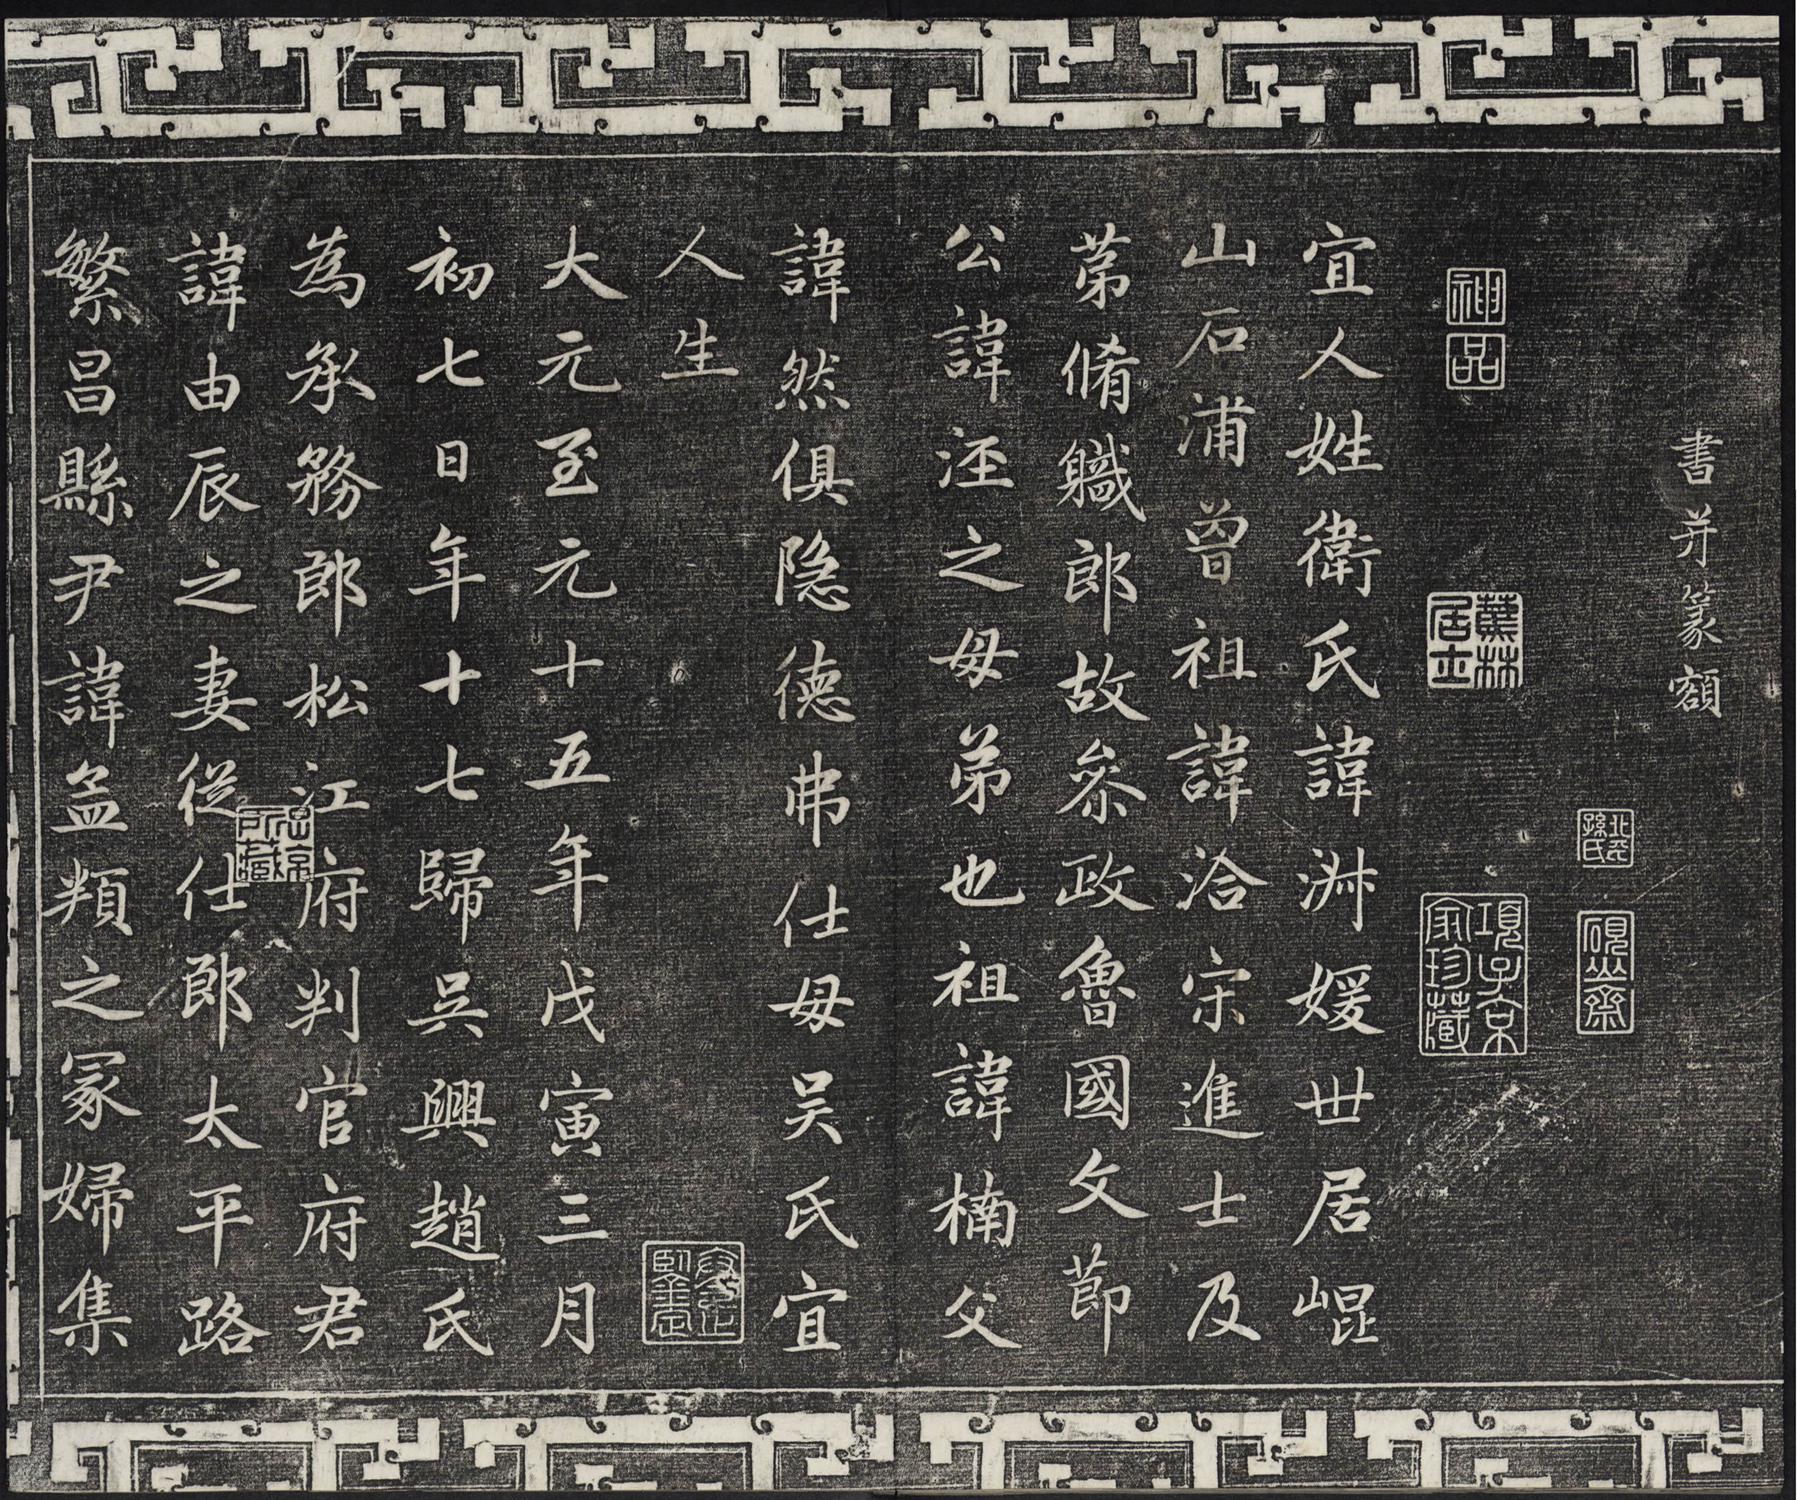 書并篆額
神品
蕉林居士
北平孫氏
硯山齋
項子京家珍藏
宜人姓衛氏諱淑媛世居崐
山石浦曾祖諱洽宋進士及
第脩職郎故叅政魯國文節
公諱涇之母弟也祖諱楠父
諱然俱隐德弗仕母吴氏宜
人生
大元至元十五年戊寅三月
初七日年十七歸吳興趙氏
為承務郎松江府判官府君
諱由辰之妻從仕郎太平路
繁昌縣尹諱孟頖之冢婦集